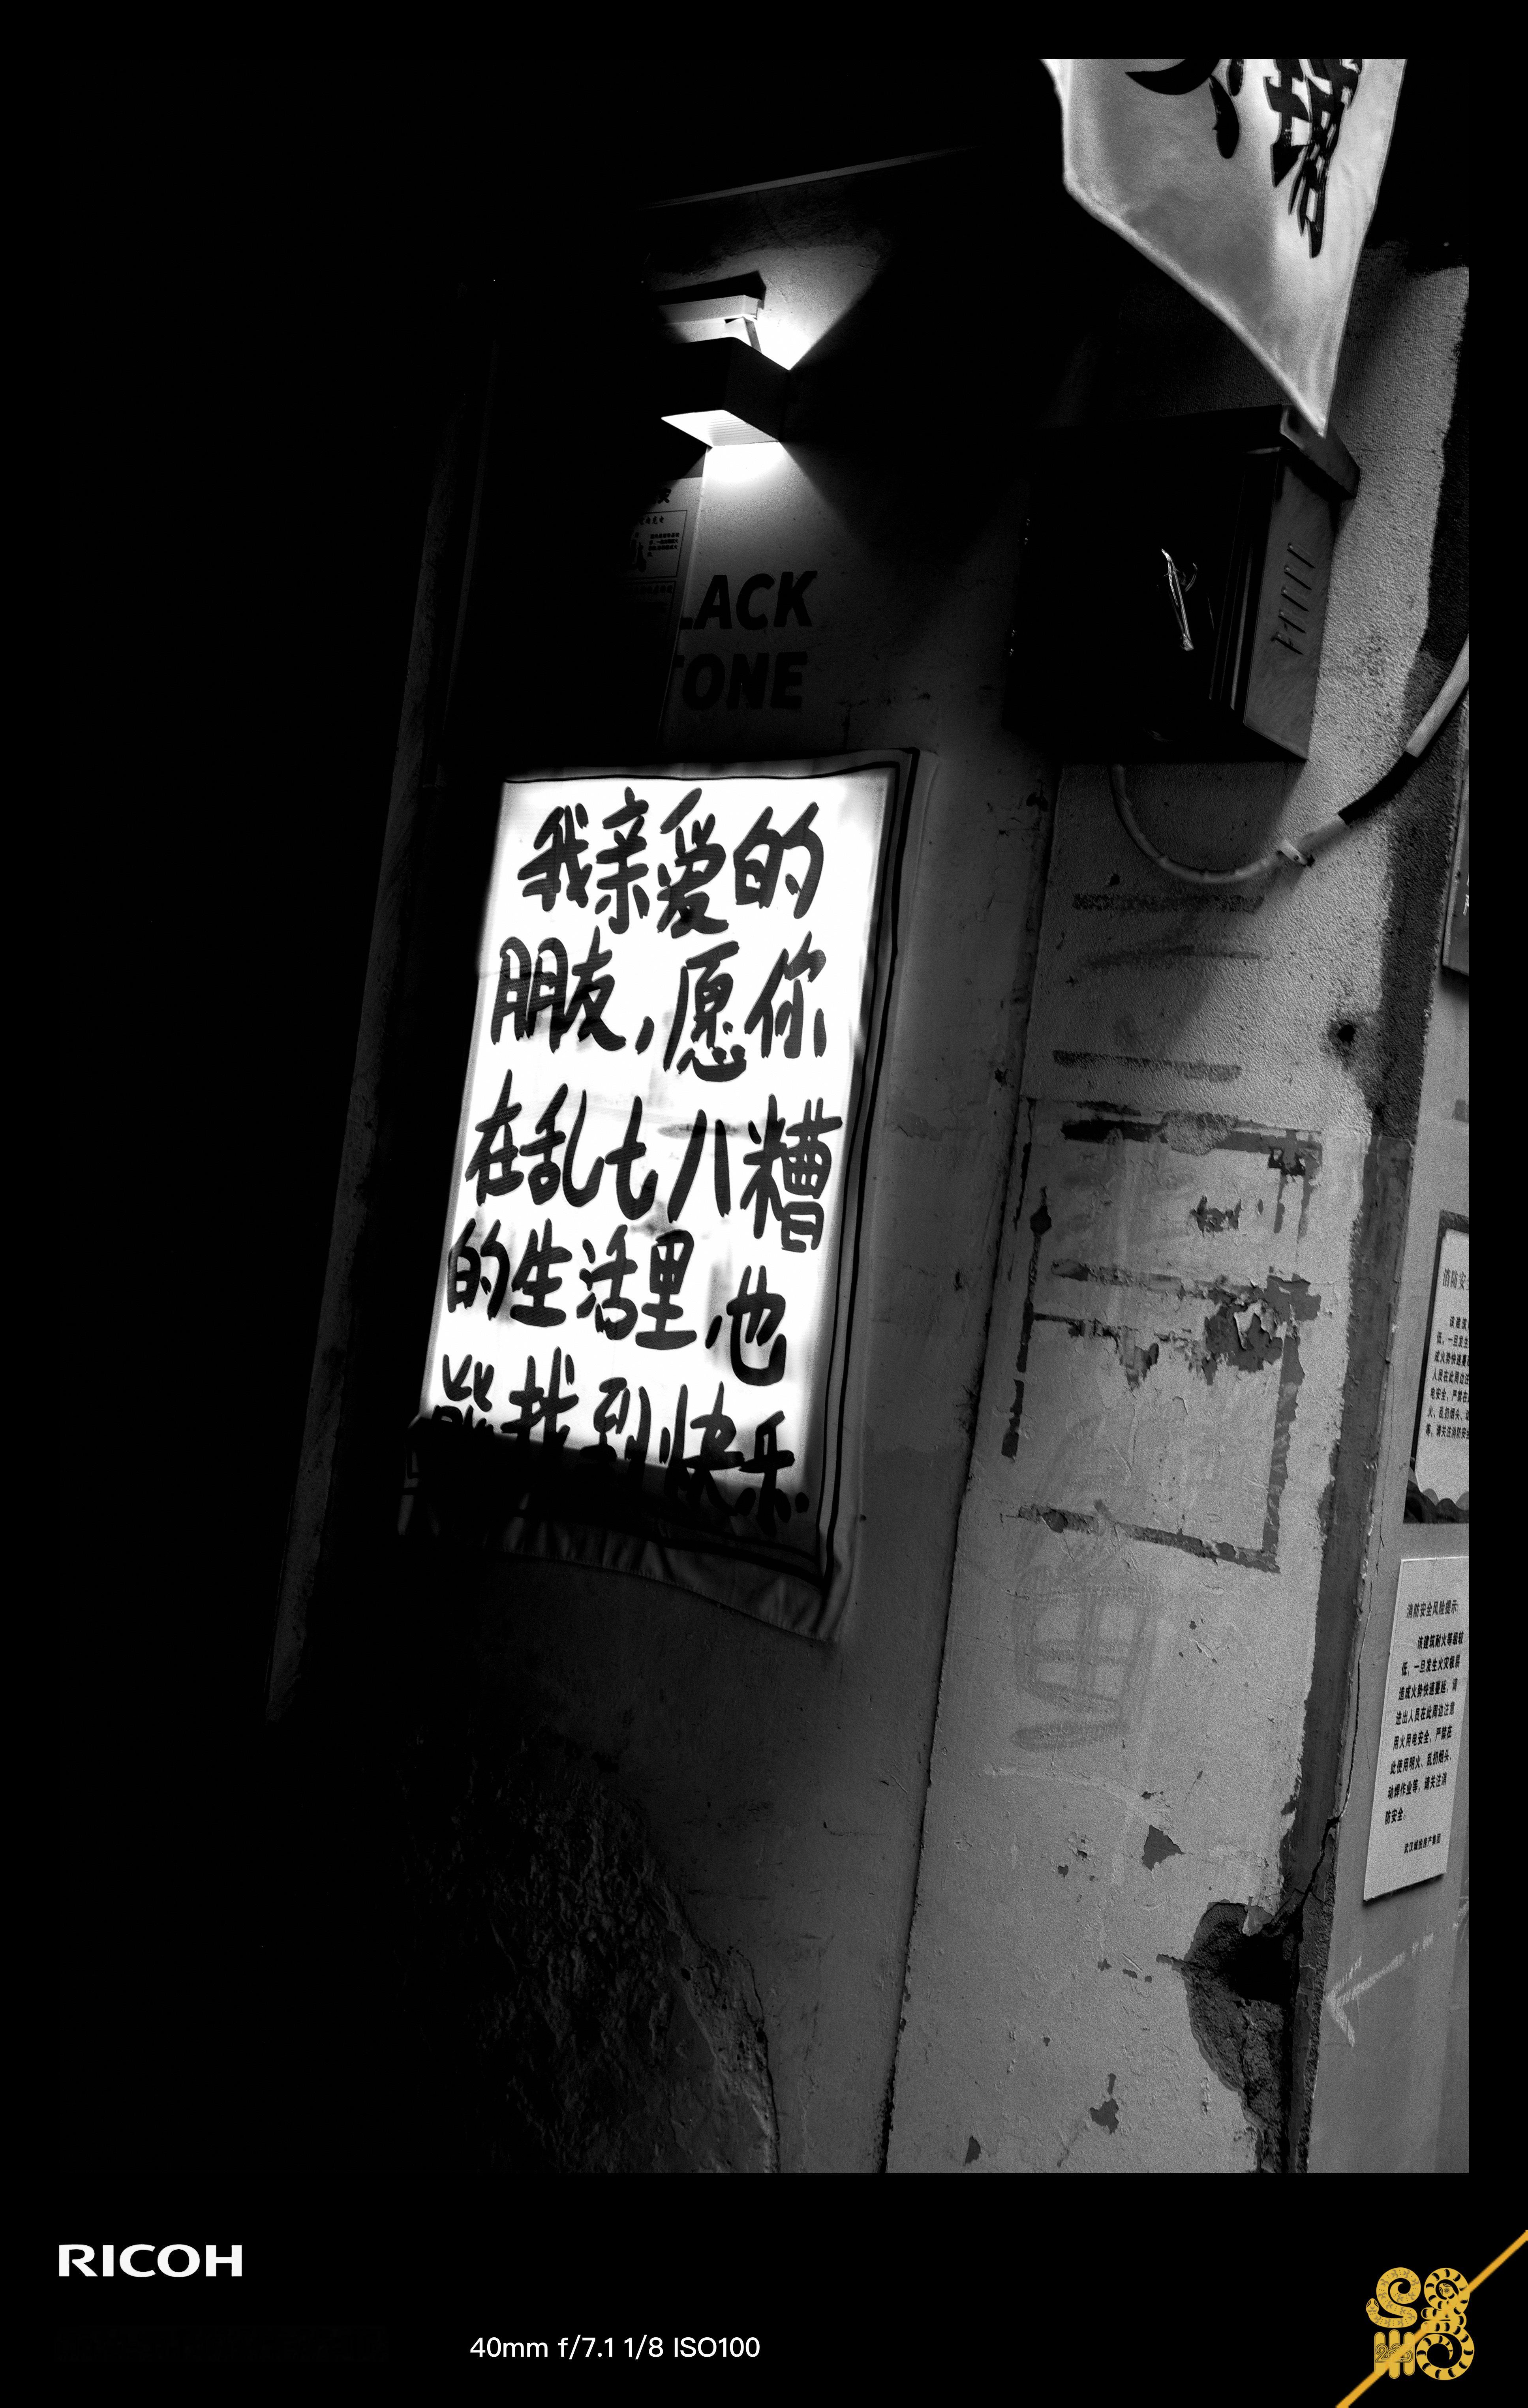 LACK
TONE
我亲爱的
朋友,愿你
在乱七八糟
的生活里,也
能找到快乐.
消防安
消防安全风险提示:
该建筑耐火等级较
低,一旦发生火灾极易
造成火势快速蔓延,请
进出人员在此周边注意
用火用电安全,严禁在
此使用明火、乱扔烟头、
动焊作业等,请关注消
防安全。
武汉城投房产集团
RICOH
40mm f/7.1 1/8 ISO100